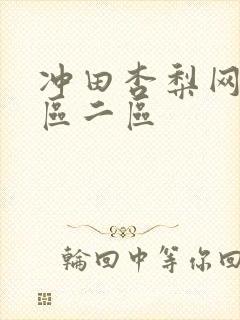 冲田杏梨网
區二區
輪回中等你回